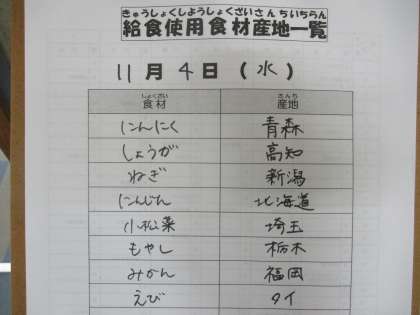 きゅうしょくしようしょくざいさんちいちらん
給食使用食材産地一覧
11月4日(水)
しょくざい さんち
食材 産地
にんにく 青森
しょうが 高知
ねぎ 新潟
にんじん 北海道
小松菜 埼玉
もやし 栃木
みかん 福岡
えび タイ